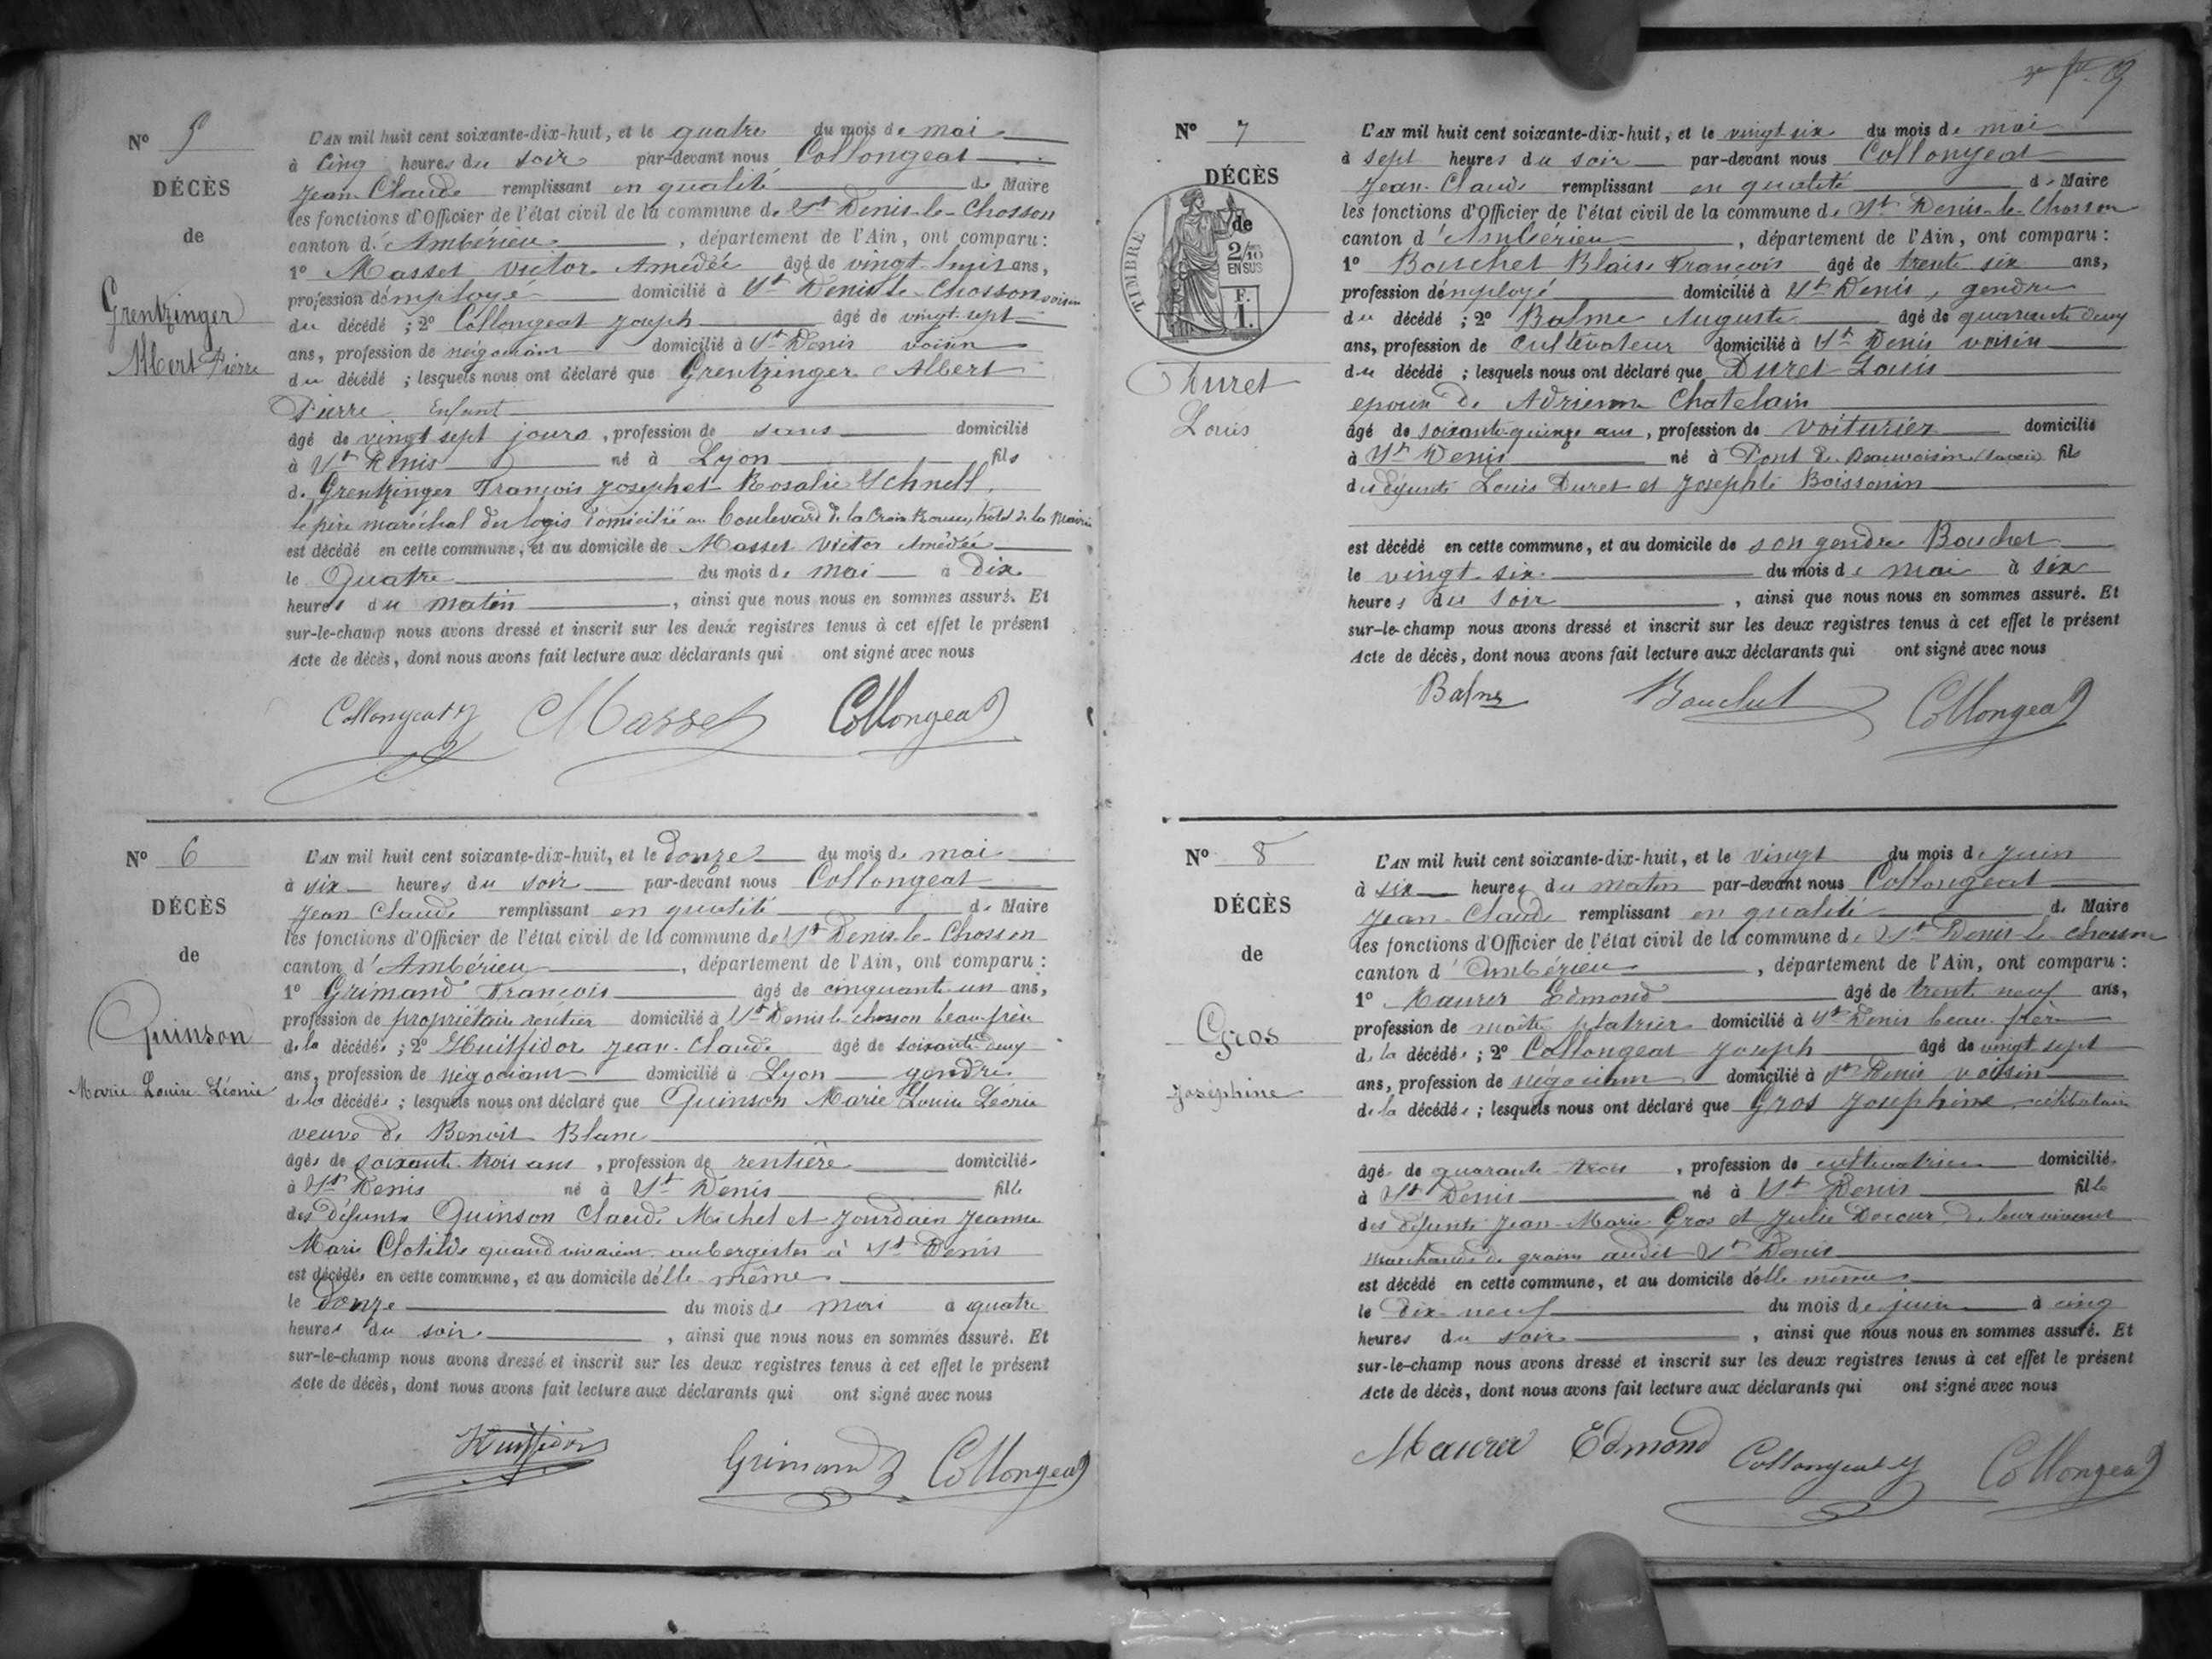 N° 5
DÉCÈS
de
Grentzinger
Albert Pierre
L'AN mil huit cent soixante-dix-huit, et le quatre du mois de mai
à cinq heures du soir par-devant nous Collongeat
Jean Claude remplissant en qualité de Maire
les fonctions d'Officier de l'état civil de la commune de St Denis-le-Chosson
canton d'Ambérieu, département de l'Ain, ont comparu :
1° Masset Victor Amédée âgé de vingt huit ans,
profession d'employé domicilié à St Denis le Chosson voisin
du décédé ; 2° Collongeat Joseph âgé de vingt sept
ans, profession de négociant domicilié à St Denis voisin
du décédé ; lesquels nous ont déclaré que Grentzinger Albert
Pierre Enfant
âgé de vingt sept jours, profession de sans domicilié
à St Denis né à Lyon fils
de Grentzinger François Joseph et Rosalie Schnell,
le père maréchal des logis domicilié au boulevard de la Croix Rousse, hôtel de la Mairie
est décédé en cette commune, et au domicile de Masset Victor Amédée
le Quatre du mois de mai à Dix
heures du matin, ainsi que nous nous en sommes assuré. Et
sur-le-champ nous avons dressé et inscrit sur les deux registres tenus à cet effet le présent
Acte de décès, dont nous avons fait lecture aux déclarants qui ont signé avec nous
Collongeat J Masset Collongeat
N° 6
DÉCÈS
de
Quinson
Marie Louise Léonie
L'AN mil huit cent soixante-dix-huit, et le douze du mois de mai
à six heures du soir par-devant nous Collongeat
Jean Claude remplissant en qualité de Maire
les fonctions d'Officier de l'état civil de la commune de St Denis-le-Chosson
canton d'Ambérieu, département de l'Ain, ont comparu :
1° Grimand François âgé de cinquante un ans,
profession de propriétaire rentier domicilié à St Denis le chosson beau frère
de la décédée ; 2° Huitfidor Jean-Claude âgé de soixante deux
ans, profession de négociant domicilié à Lyon gendre
de la décédée ; lesquels nous ont déclaré que Quinson Marie Louise Léonie
veuve de Benoit Blanc
âgée de soixante trois ans, profession de rentière domiciliée
à St Denis né à St Denis fille
des défunts Quinson Claude Michel et Jourdain Jeanne
Marie Clotilde quand vivaient aubergistes à St Denis
est décédée en cette commune, et au domicile d'elle même
le douze du mois de mai à quatre
heures du soir, ainsi que nous nous en sommes assuré. Et
sur-le-champ nous avons dressé et inscrit sur les deux registres tenus à cet effet le présent
Acte de décès, dont nous avons fait lecture aux déclarants qui ont signé avec nous
Huitfidor Grimand Collongeat
N° 7
DÉCÈS
de
TIMBRE
2/10
EN SUS
F.
1.
Duret
Louis
L'AN mil huit cent soixante-dix-huit, et le vingt six du mois de mai
à sept heures du soir par-devant nous Collongeat
Jean-Claude remplissant en qualité de Maire
les fonctions d'Officier de l'état civil de la commune de St Denis-le-Chosson
canton d'Ambérieu, département de l'Ain, ont comparu :
1° Bouchet Blaise François âgé de trente six ans,
profession d'employé domicilié à St Denis, gendre
du décédé ; 2° Balme Auguste âgé de quarante deux
ans, profession de cultivateur domicilié à St Denis voisin
du décédé ; lesquels nous ont déclaré que Duret Louis
epoux de Adrienne Chatelain
âgé de soixante-quinze ans, profession de voiturier domicilié
à St Denis né à Pont de Beauvoisin (Savoie) fils
des défunts Louis Duret et Josephte Boissonin
est décédé en cette commune, et au domicile de son gendre Bouchet
le vingt six du mois de mai à six
heures du soir, ainsi que nous nous en sommes assuré. Et
sur-le-champ nous avons dressé et inscrit sur les deux registres tenus à cet effet le présent
Acte de décès, dont nous avons fait lecture aux déclarants qui ont signé avec nous
Balme Bouchet Collongeat
N° 8
DÉCÈS
de
Gros
Joséphine
L'AN mil huit cent soixante-dix-huit, et le vingt du mois de juin
à six heures du matin par-devant nous Collongeat
Jean-Claude remplissant en qualité de Maire
les fonctions d'Officier de l'état civil de la commune de St Denis le chosson
canton d'Ambérieu, département de l'Ain, ont comparu :
1° Maurer Edmond âgé de trente neuf ans,
profession de maître platrier domicilié à St Denis beau frère
de la décédée ; 2° Collongeat Joseph âgé de vingt sept
ans, profession de négociant domicilié à St Denis voisin
de la décédée ; lesquels nous ont déclaré que Gros Josephine célibataire
âgé de quarante trois, profession de cultivatrice domicilié
à St Denis né à St Denis fille
des défunts Jean-Marie Gros et Julie de leur vivant
marchands de grains audit St Denis
est décédé en cette commune, et au domicile d'elle même
le dix neuf du mois de juin à cinq
heures du soir, ainsi que nous nous en sommes assuré. Et
sur-le-champ nous avons dressé et inscrit sur les deux registres tenus à cet effet le présent
Acte de décès, dont nous avons fait lecture aux déclarants qui ont signé avec nous
Maurer Edmond Collongeat J Collongeat